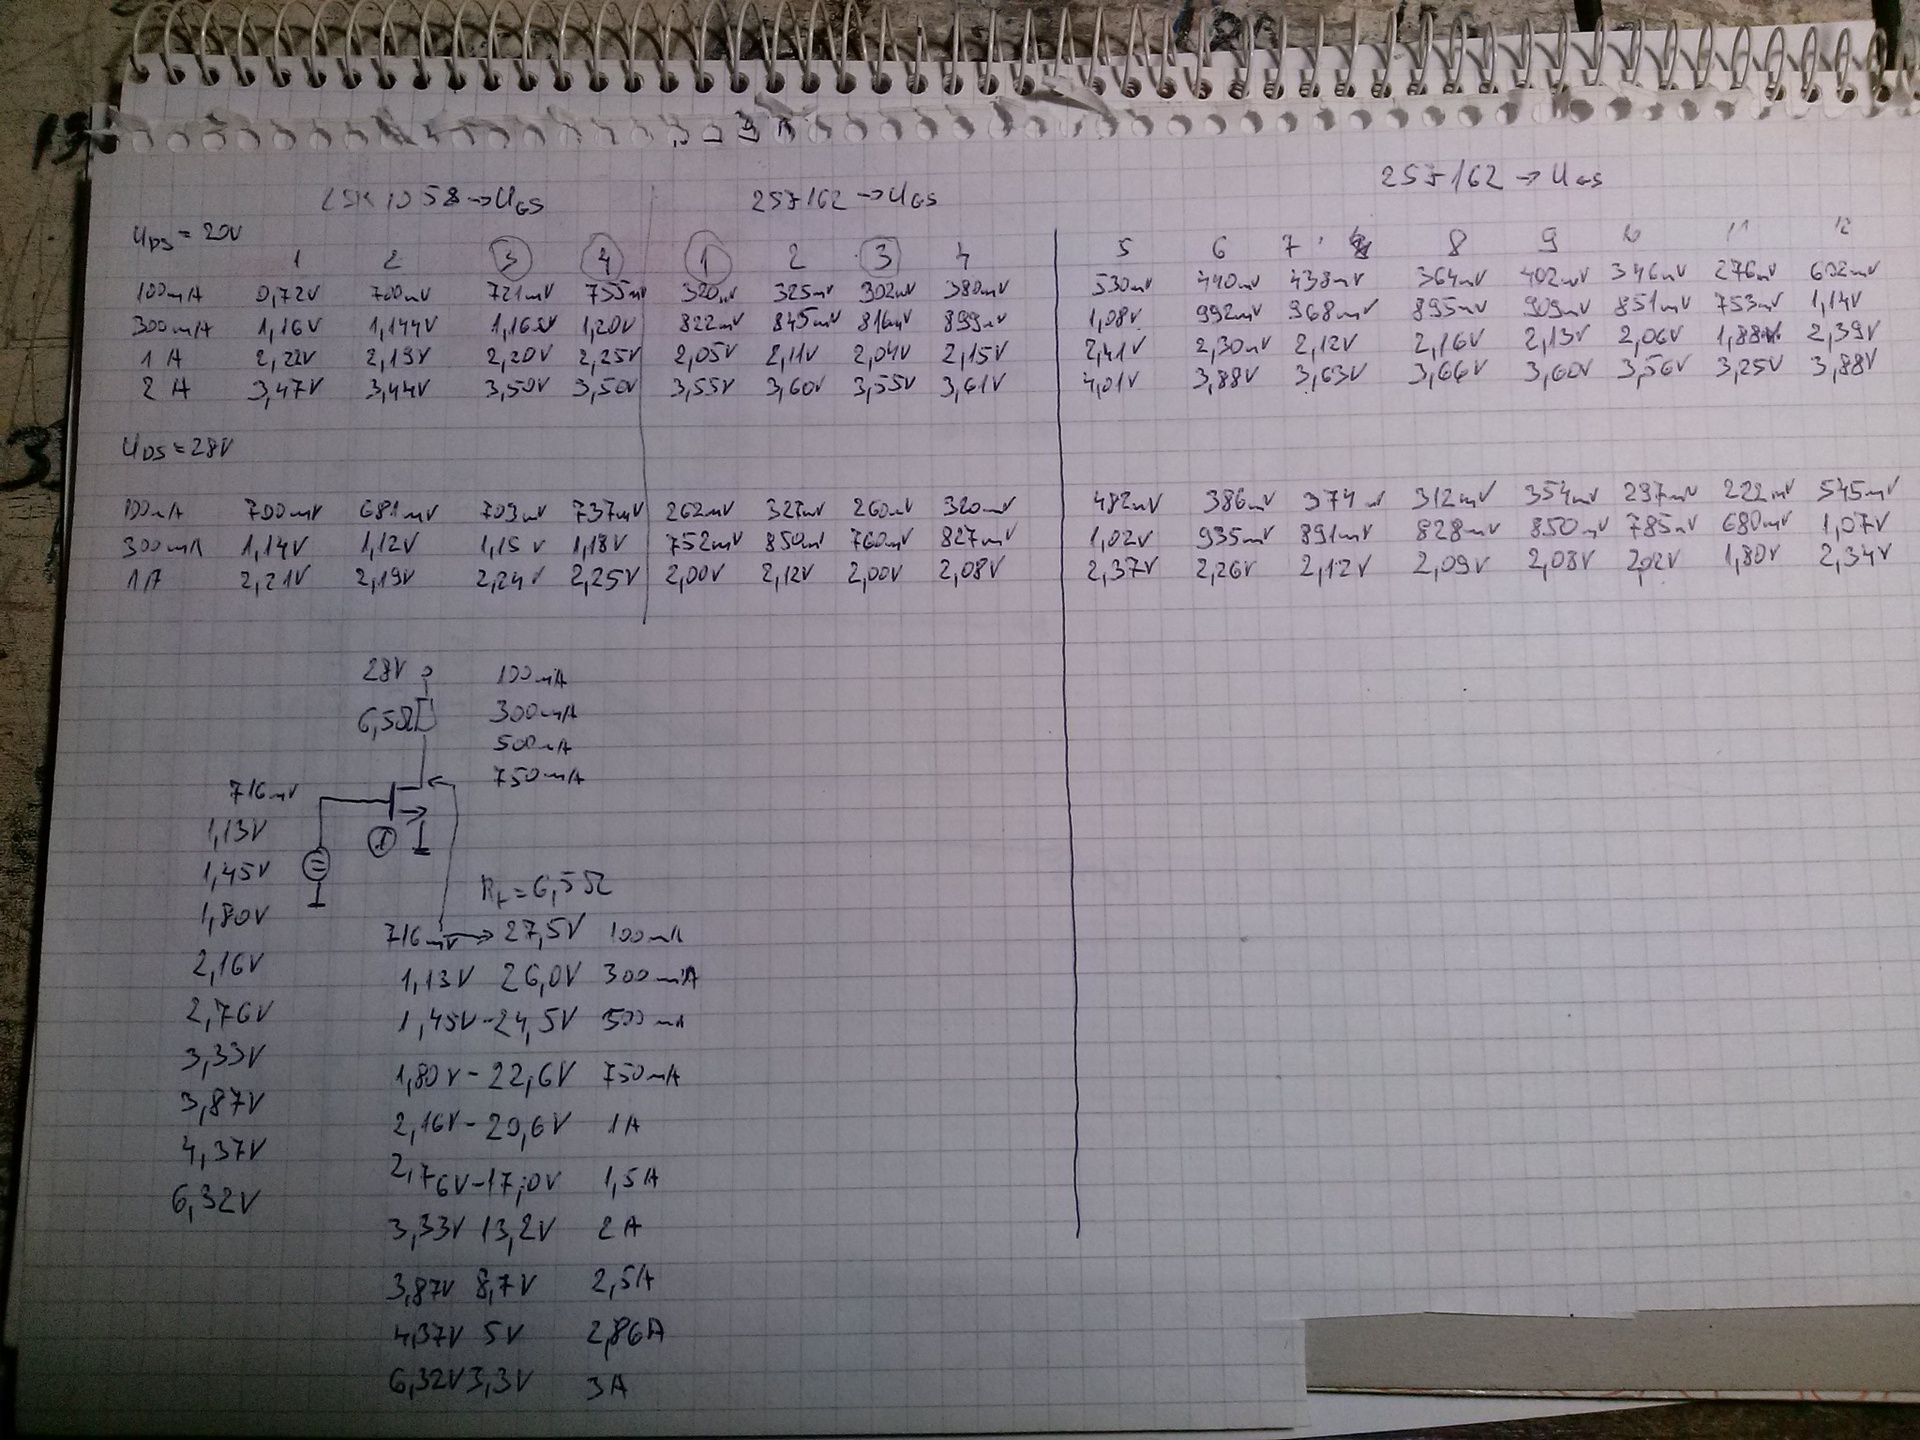 2SK1058 → UGS 2SJ162 → UGS 2SJ162 → UGS
UDS = 20V
1 2 3 4 1 2 3 4 5 6 7 8 9 10 11 12
100mA 0,72V 700mV 721mV 755mV 320mV 325mV 302mV 380mV 530mV 440mV 438mV 364mV 402mV 346mV 276mV 602mV
300mA 1,16V 1,144V 1,16V 1,20V 822mV 845mV 816mV 899mV 1,08V 992mV 968mV 895mV 909mV 851mV 753mV 1,14V
1A 2,22V 2,19V 2,20V 2,25V 2,05V 2,11V 2,04V 2,15V 2,41V 2,30mV 2,12V 2,16V 2,13V 2,06V 1,88V 2,39V
2A 3,47V 3,44V 3,50V 3,50V 3,55V 3,60V 3,55V 3,61V 4,01V 3,88V 3,63V 3,66V 3,60V 3,56V 3,25V 3,88V
UDS = 28V
100mA 700mV 681mV 709mV 737mV 262mV 327mV 260mV 320mV 482mV 386mV 374mV 312mV 354mV 297mV 222mV 545mV
300mA 1,14V 1,12V 1,15V 1,18V 752mV 850mV 760mV 827mV 1,02V 935mV 891mV 828mV 850mV 785mV 680mV 1,07V
1A 2,21V 2,19V 2,24V 2,25V 2,00V 2,12V 2,00V 2,08V 2,37V 2,26V 2,12V 2,09V 2,08V 2,02V 1,80V 2,34V
28V 100mA
6,5Ω 300mA
500mA
750mA
716mV
1,13V 1
1,45V
1,80V
2,16V
2,76V
3,33V
3,87V
4,37V
6,32V
Rt = 6,5Ω
716mV → 27,5V 100mA
1,13V 26,0V 300mA
1,45V - 24,5V 500mA
1,80V - 22,6V 750mA
2,16V - 20,6V 1A
2,76V - 17,0V 1,5A
3,33V 13,2V 2A
3,87V 8,7V 2,5A
4,37V 5V 2,86A
6,32V 3,3V 3A